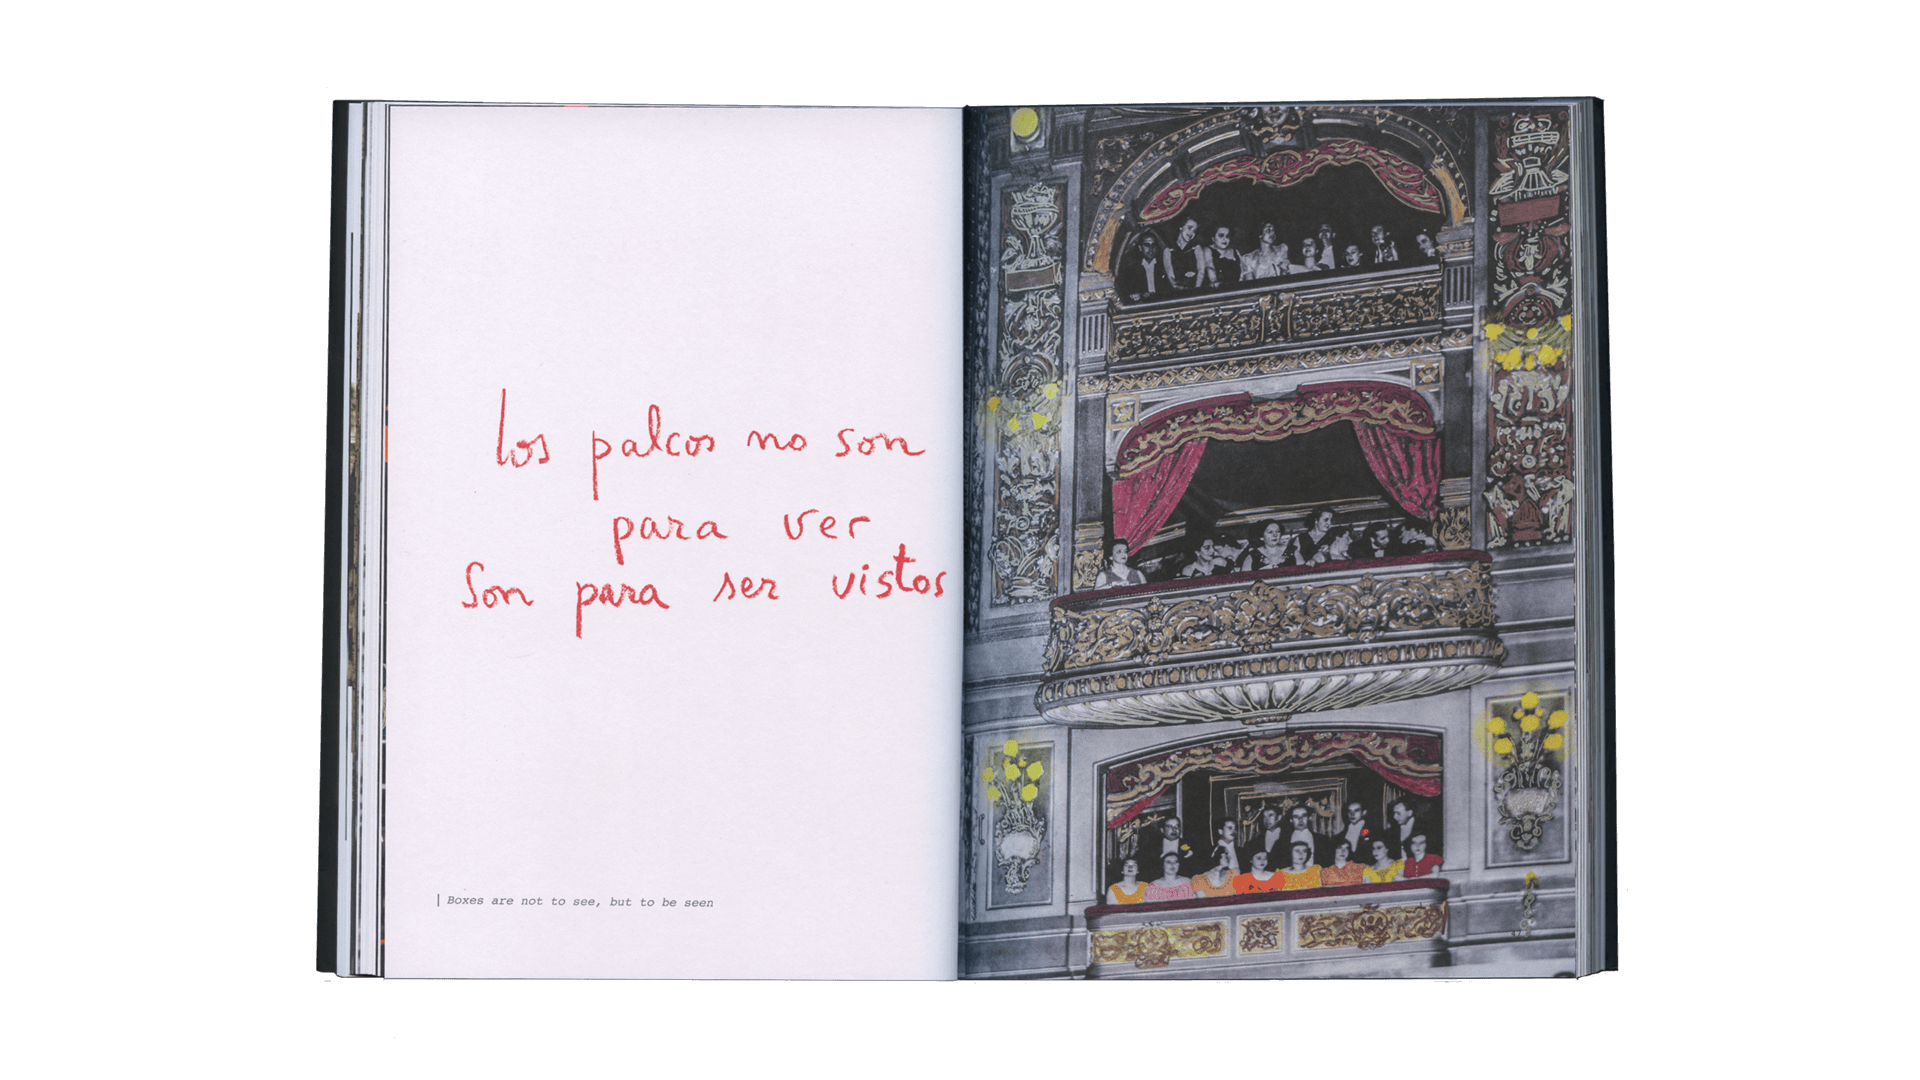 los palcos no son
para ver
Son para ser vistos
| Boxes are not to see, but to be seen